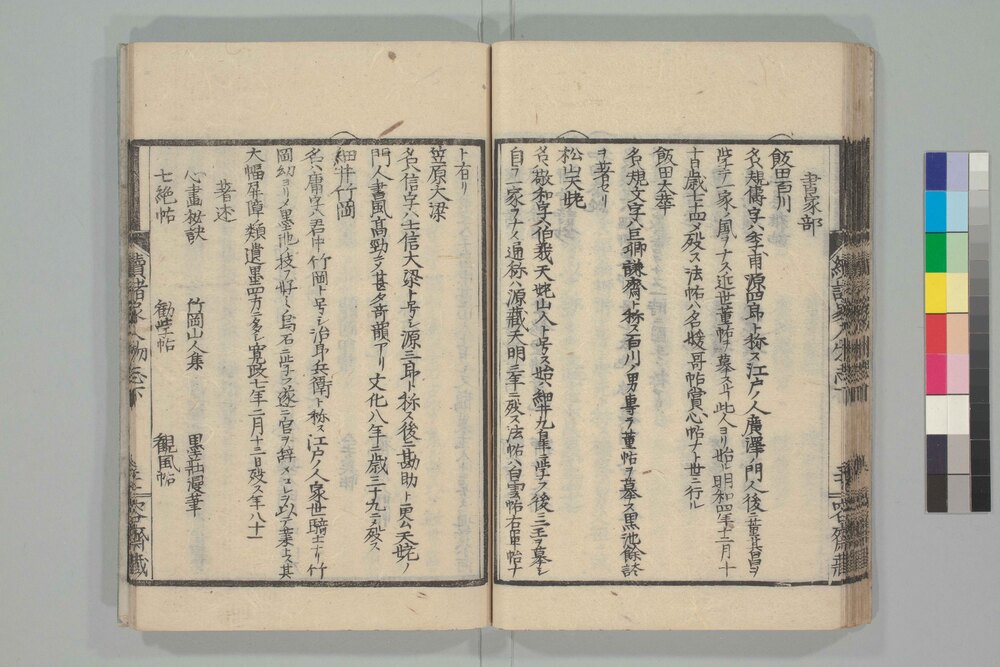 書家部
飯田百川
名ハ規儔字ハ李甫源四郎ト称ス江戸ノ人廣澤ノ門人後ニ董其昌ヲ
学テ一家ノ風ヲナス近世董帖ヲ慕スルヿ此人ヨリ始ル明和四年十二月十
十日歳七十四ニメ歿ス法帖ハ名媛哥帖賞心帖ナト世ニ行ル
飯田太華
名ハ規文字ハ臣卿謙齋ト称ス百川ノ男専ラ董帖ヲ慕ス黒池餘談
ヲ著セリ
松山天姥
名ハ敬和字ハ伯哉天姥山人ト号ス始ハ細井九皐ニ学ヲ後ニ三王ヲ慕シ
自ラ一家ヲナス通称ハ源藏天明三年ニ歿ス法帖ハ白雲帖右軍帖ナ
ト有リ
笠原大梁
名ハ信字ハ士信大梁ト号シ源三郎ト称ス後ニ勘助ト更ム天姥ノ
門人書風高勁ニメ甚タ奇韻アリ文化八年ニ歳三十九ニメ歿ス
細井竹岡
名ハ庸字ハ君中竹岡ト号シ治郎兵衛ト称ス江戸ノ人家世騎士ナリ竹
岡幼ヨリメ墨池ノ技ヲ好ミ烏石ニ学フ遂ニ官ヲ辞メコレヲ以テ業トス其
大幅屏障ノ類遺墨四方ニ多シ寛政七年二月十三日歿ス年八十一
著述
心畫秘訣 竹岡山人集 墨莊漫筆
七絶帖 勧学帖 觀風帖
續諸家人物志下